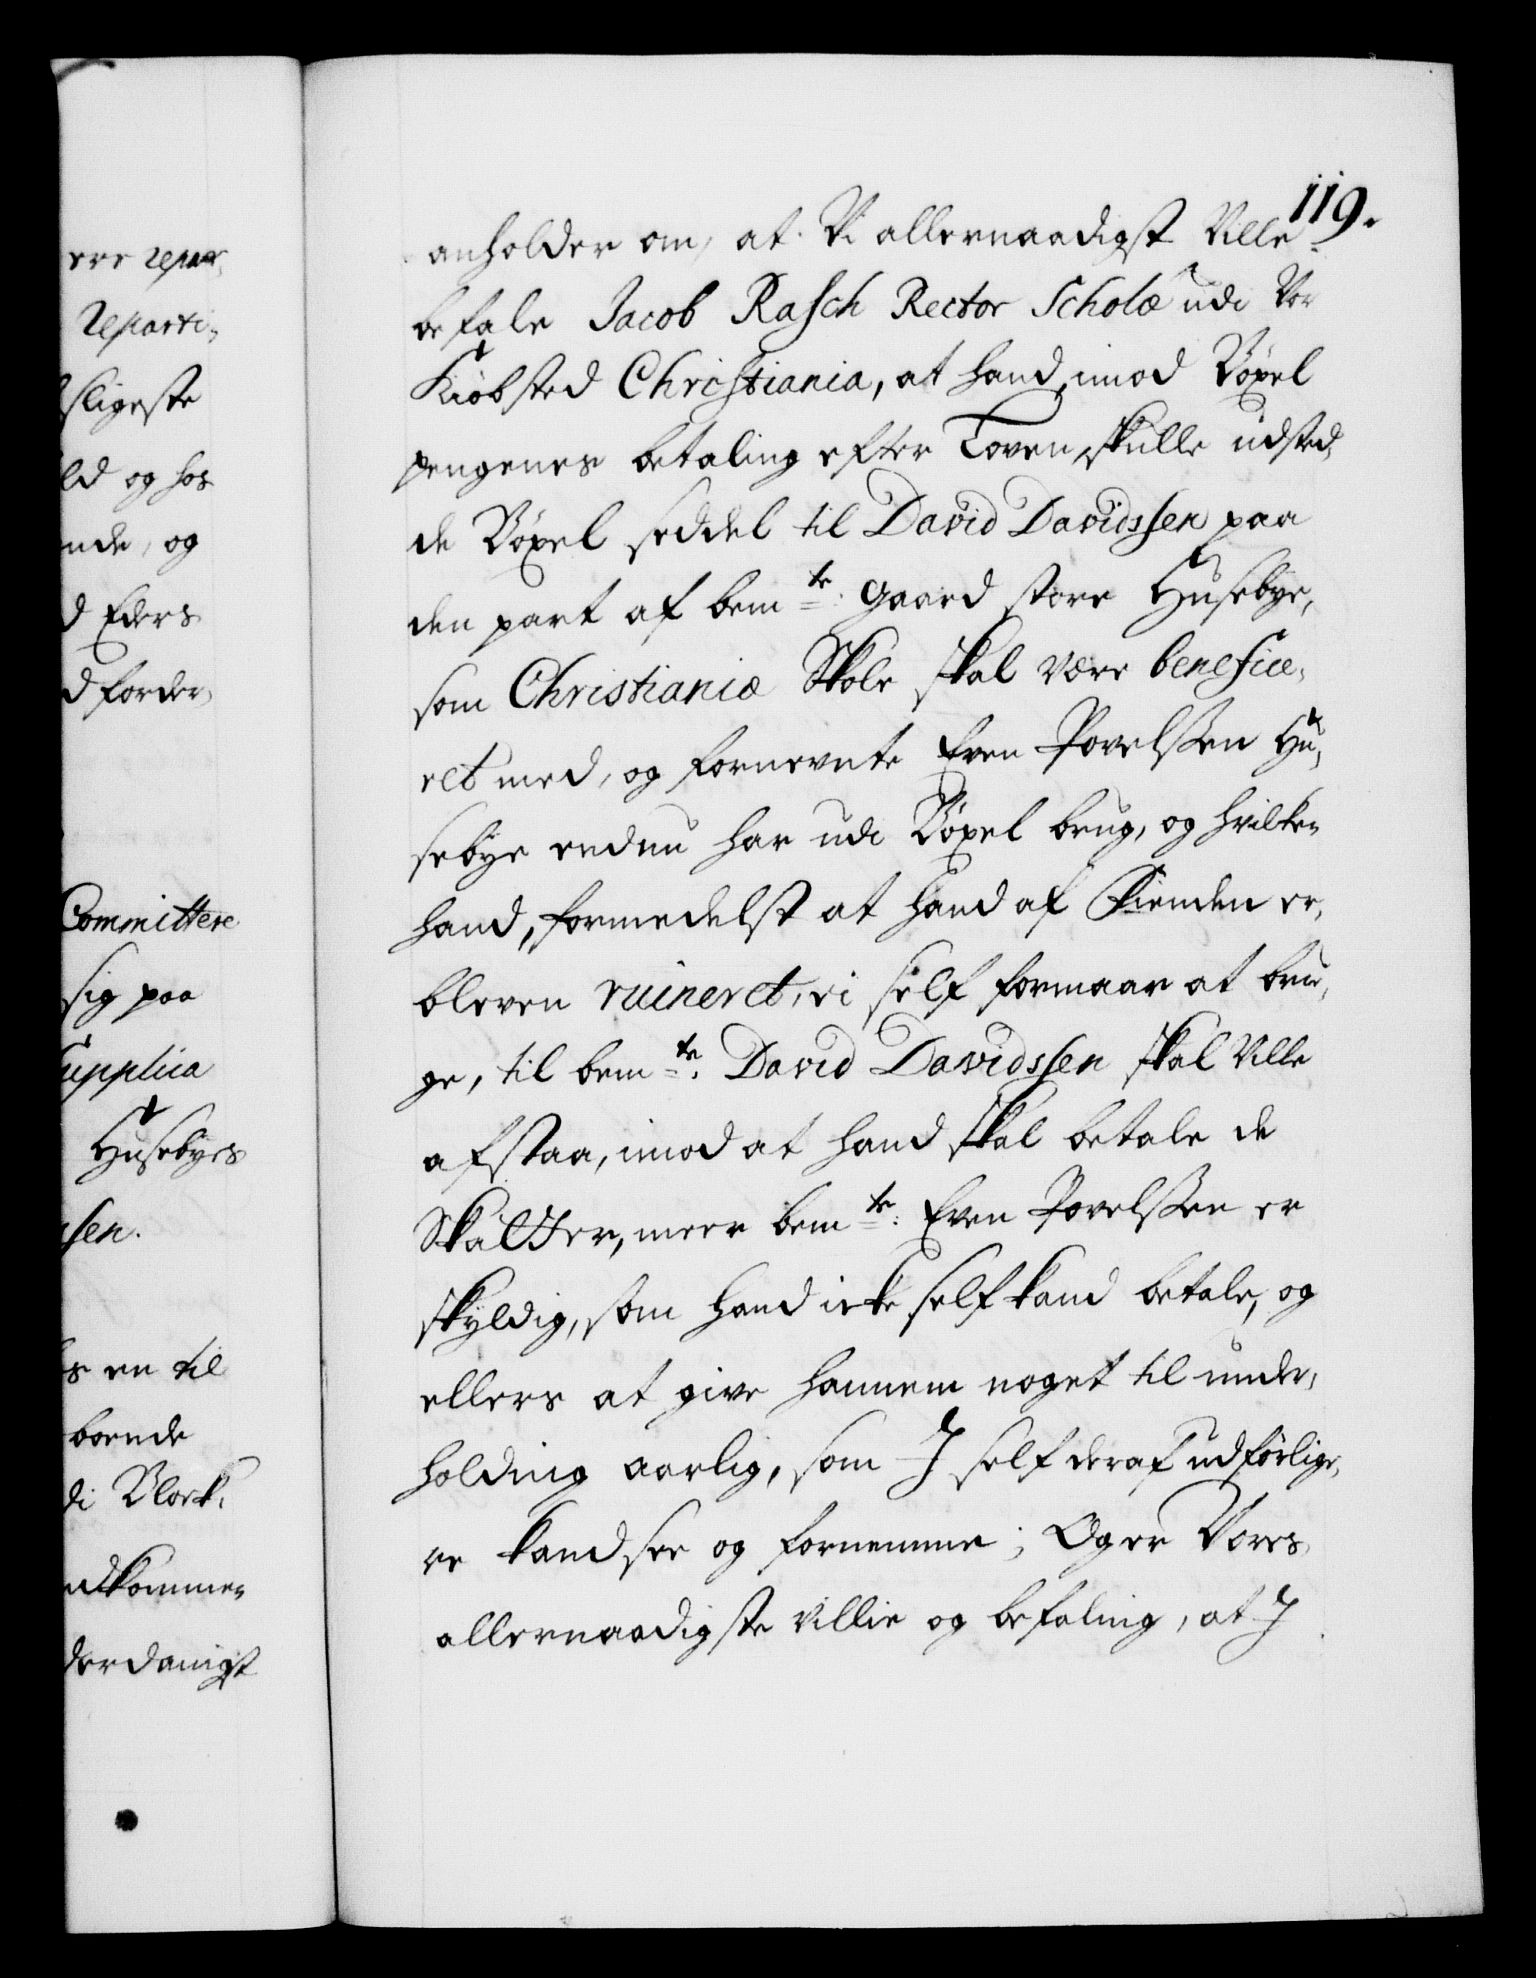 ere repar,
Reparti,
sligeste
ld og hos
nde, og
d Eders
d forder,
Committere
sig paa
Supplica
Husebyes
ssen.
s en til
boende
di Block,
udkommen
derdanigst
119.
anholder om, at Vi allernaadigst Ville
befale Jacob Rasch Rector Scholæ udi Vor
Kiøbsted Christiania, at hand, imod Bøxel
pengenes betaling efter Loven, skulle udsted,
de Bøxel seddel til David Davidssen paa
den part af bemte: gaard store Husebye,
som Christianiæ Skole skal være benefice,
ret med, og fornevnte Even Povelssen Hu,
sebye endnu har udi Bøxel brug, og hvilken
hand, formedelst at hand af Fienden er,
bleven ruineret, ei self formaar at bru,
ge, til bemte: David Davidssen skal Ville
afstaa, imod at hand skal betale de
Skatter, meer bemte: Even Povelssen er
skyldig, som hand icke self kand betale, og
ellers at give hannem noget til under,
holding aarlig, som J self deraf udførlige,
re kand see og fornemme; Og er Vores
allernaadigste villie og befaling, at J